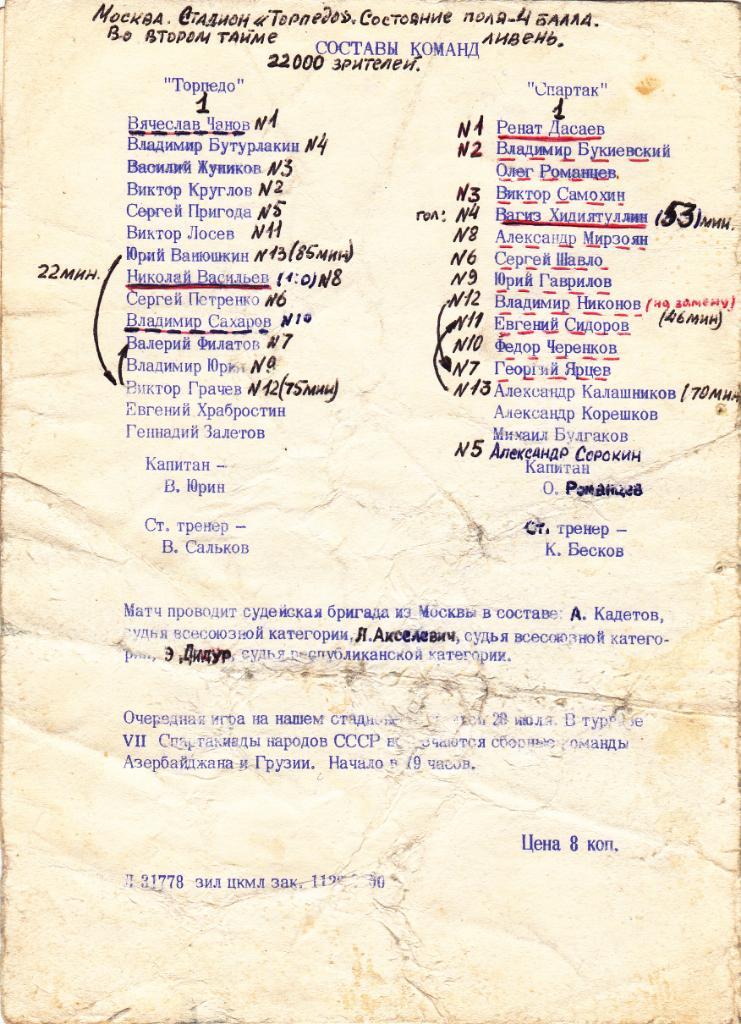 Москва. Стадион «Торпедо». Состояние поля-4 балла.
Во втором тайме ливень.
СОСТАВЫ КОМАНД
22000 зрителей.
"Торпедо"
1
Вячеслав Чанов №1
Владимир Бутурлакин №4
Василий Жупиков №3
Виктор Круглов №2
Сергей Пригода №5
Виктор Лосев №11
Юрий Ванюшкин №13 (85мин)
22мин. Николай Васильев (1:0) №8
Сергей Петренко №6
Владимир Сахаров №10
Валерий Филатов №7
Владимир Юрин №9
Виктор Грачев №12 (75мин)
Евгений Храбростин
Геннадий Залетов
Капитан –
В. Юрин
Ст. тренер –
В. Сальков
"Спартак"
1
№1 Ренат Дасаев
№2 Владимир Букиевский
Олег Романцев
№3 Виктор Самохин
гол: №4 Вагиз Хидиятуллин (53) мин.
№8 Александр Мирзоян
№6 Сергей Шавло
№9 Юрий Гаврилов
№12 Владимир Никонов (на замену)
(46мин)
№11 Евгений Сидоров
№10 Федор Черенков
№7 Георгий Ярцев
№13 Александр Калашников (70мин
Александр Корешков
Михаил Булгаков
№5 Александр Сорокин
Капитан
О. Романцев
Ст. тренер –
К. Бесков
Матч проводит судейская бригада из Москвы в составе: А. Кадетов,
судья всесоюзной категории, Л. Акселевич, судья всесоюзной катего-
рии, Э. Дидур, судья республиканской категории.
Очередная игра на нашем 20 июля. В турнире
VII Спартакиады народов СССР встречаются сборные команды
Азербайджана и Грузии. Начало в 19 часов.
Цена 8 коп.
Л 31778 зил цкмл зак.